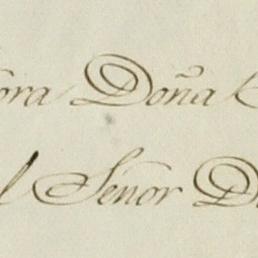 ora Doña
l Señor D